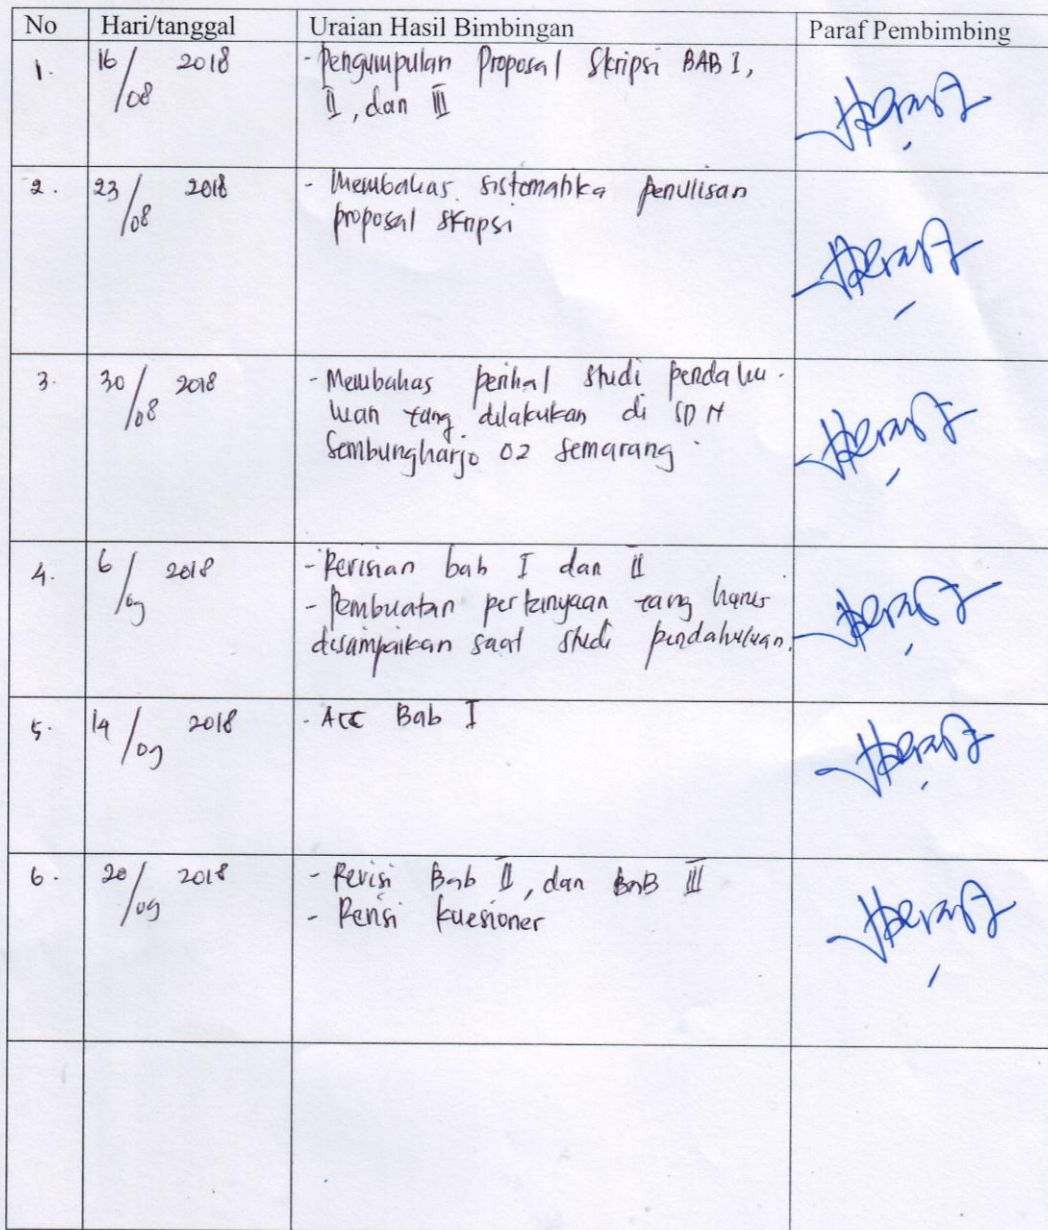 No Hari/tanggal Uraian Hasil Bimbingan Paraf Pembimbing
1. 16/08 2018 - Pengumpulan Proposal Skripsi BAB I,
II, dan III
2. 23/08 2018 - Membahas sistematika penulisan
proposal skripsi
3. 30/08 2018 - Membahas perihal studi pendahu-
luan yang dilakukan di SDN
Sembungharjo 02 Semarang
4. 6/09 2018 - Revisian bab I dan II
- Pembuatan pertanyaan yang harus
disampaikan saat studi pendahuluan.
5. 14/09 2018 - ACC Bab I
6. 20/09 2018 - Revisi Bab II, dan BaB III
- Revisi kuesioner